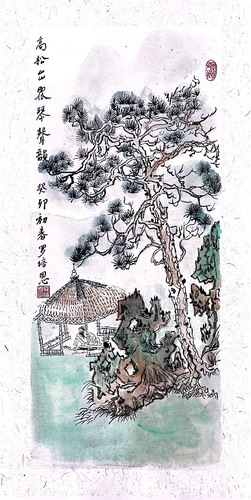 高松出众琴聲韻 癸卯初春罗培恩